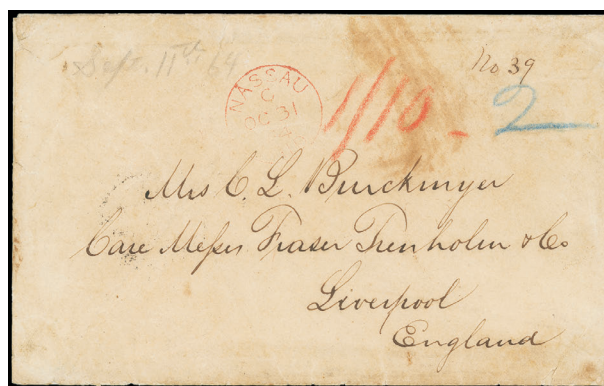 Sept. 11th 64
No 39
NASSAU
C
OC 31
4
1/10 - 2
Mrs C. L. Burckmyer
Care Messrs Fraser Trenholm & Co
Liverpool
England